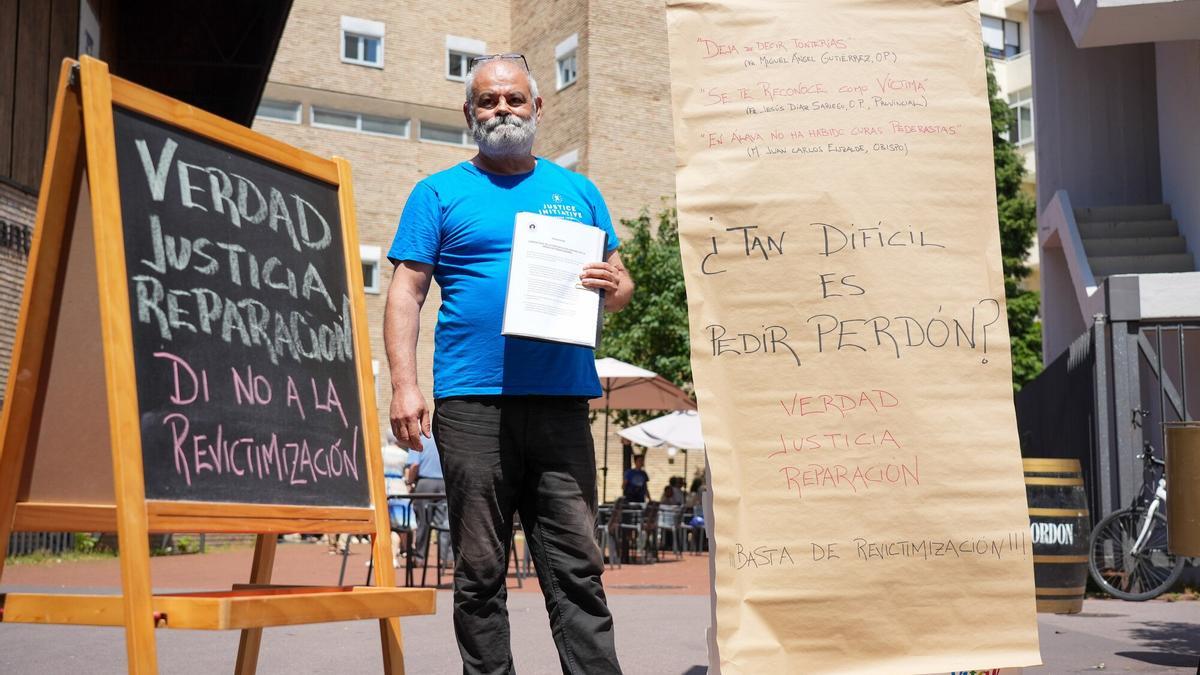 VERDAD
JUSTICIA
REPARACIÓN
DI NO A LA
REVICTIMIZACIÓN
JUSTICE
INITIATIVE
"DEJA DE DECIR TONTERÍAS"
MIGUEL ÁNGEL GUTIÉRREZ, O.P.)
"SE TE RECONOCE COMO VÍCTIMA"
JESÚS DÍAZ SARIEGO, O.P., PROVINCIAL)
"EN ÁLAVA NO HA HABIDO CURAS PEDERASTAS"
JUAN CARLOS ELIZALDE, OBISPO)
¿TAN DIFÍCIL
ES
PEDIR PERDÓN?
VERDAD
JUSTICIA
REPARACIÓN
¡¡¡BASTA DE REVICTIMIZACIÓN!!!
ORDON